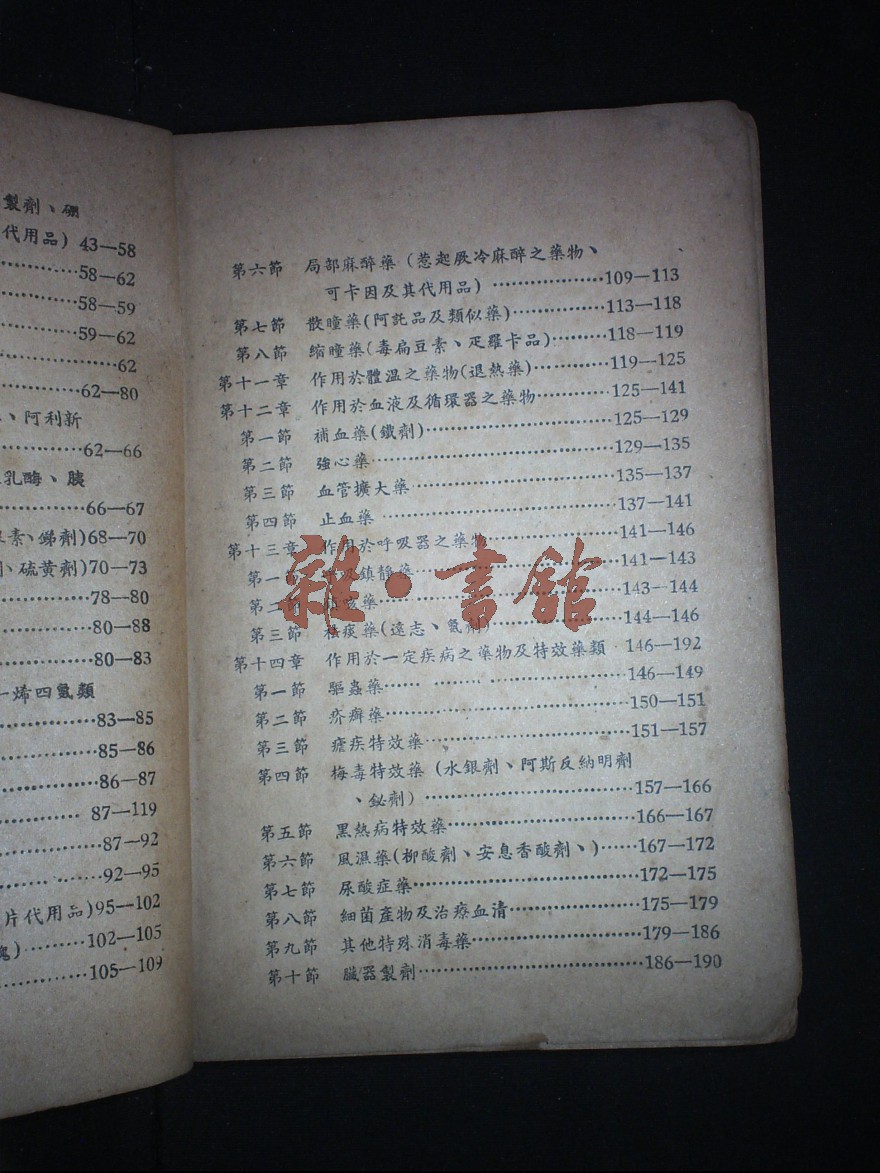 製劑、硼
代用品) 43—58
58—62
58—59
59—62
62
62—80
、阿利新
62—66
乳酶、胰
66—67
素、銻劑)68—70
、硫黃劑)70—73
78—80
80—88
80—83
一烯四氫類
83—85
85—86
86—87
87—119
87—92
92—95
片代用品)95—102
102—105
105—109
第六節 局部麻醉藥 (惹起厥冷麻醉之藥物、
可卡因及其代用品) ………………109—113
第七節 散瞳藥(阿託品及類似藥)……………113—118
第八節 縮瞳藥(毒扁豆素、疋羅卡品)………118—119
第十一章 作用於體温之藥物(退熱藥)…………119—125
第十二章 作用於血液及循環器之藥物……………125—141
第一節 補血藥(鐵劑)……………………………125—129
第二節 強心藥……………………………………129—135
第三節 血管擴大藥………………………………135—137
第四節 止血藥……………………………………137—141
第十三章 作用於呼吸器之藥物……………………141—146
第一節 呼吸鎮靜藥………………………………141—143
第二節 鎮咳藥……………………………………143—144
第三節 祛痰藥(遠志、氨劑)……………………144—146
第十四章 作用於一定疾病之藥物及特效藥類 · 146—192
第一節 驅蟲藥…… ……………………………146—149
第二節 疥癬藥……………………………………150—151
第三節 瘧疾特效藥………………………………151—157
第四節 梅毒特效藥 (水銀劑、阿斯反納明劑
、鉍劑) ……………………………157—166
第五節 黑熱病特效藥……………………………166—167
第六節 風濕藥(柳酸劑、安息香酸劑、)……167—172
第七節 尿酸症藥…………………………………172—175
第八節 細菌產物及治療血清……………………175—179
第九節 其他特殊消毒藥…………………………179—186
第十節 臟器製劑…………………………………186—190
雜·書館